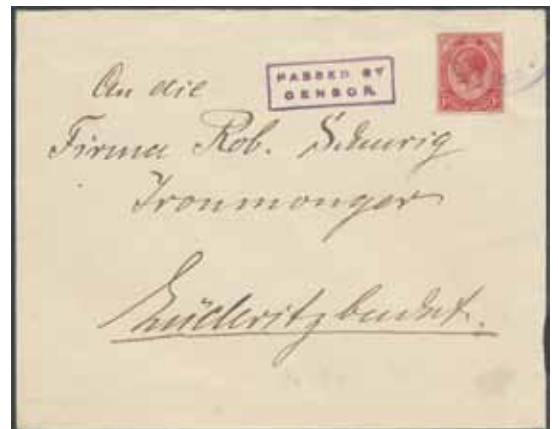 PASSED BY
CENSOR.
An die
Firma Rob. Schurig
Ironmonger
Lüderitzbucht.